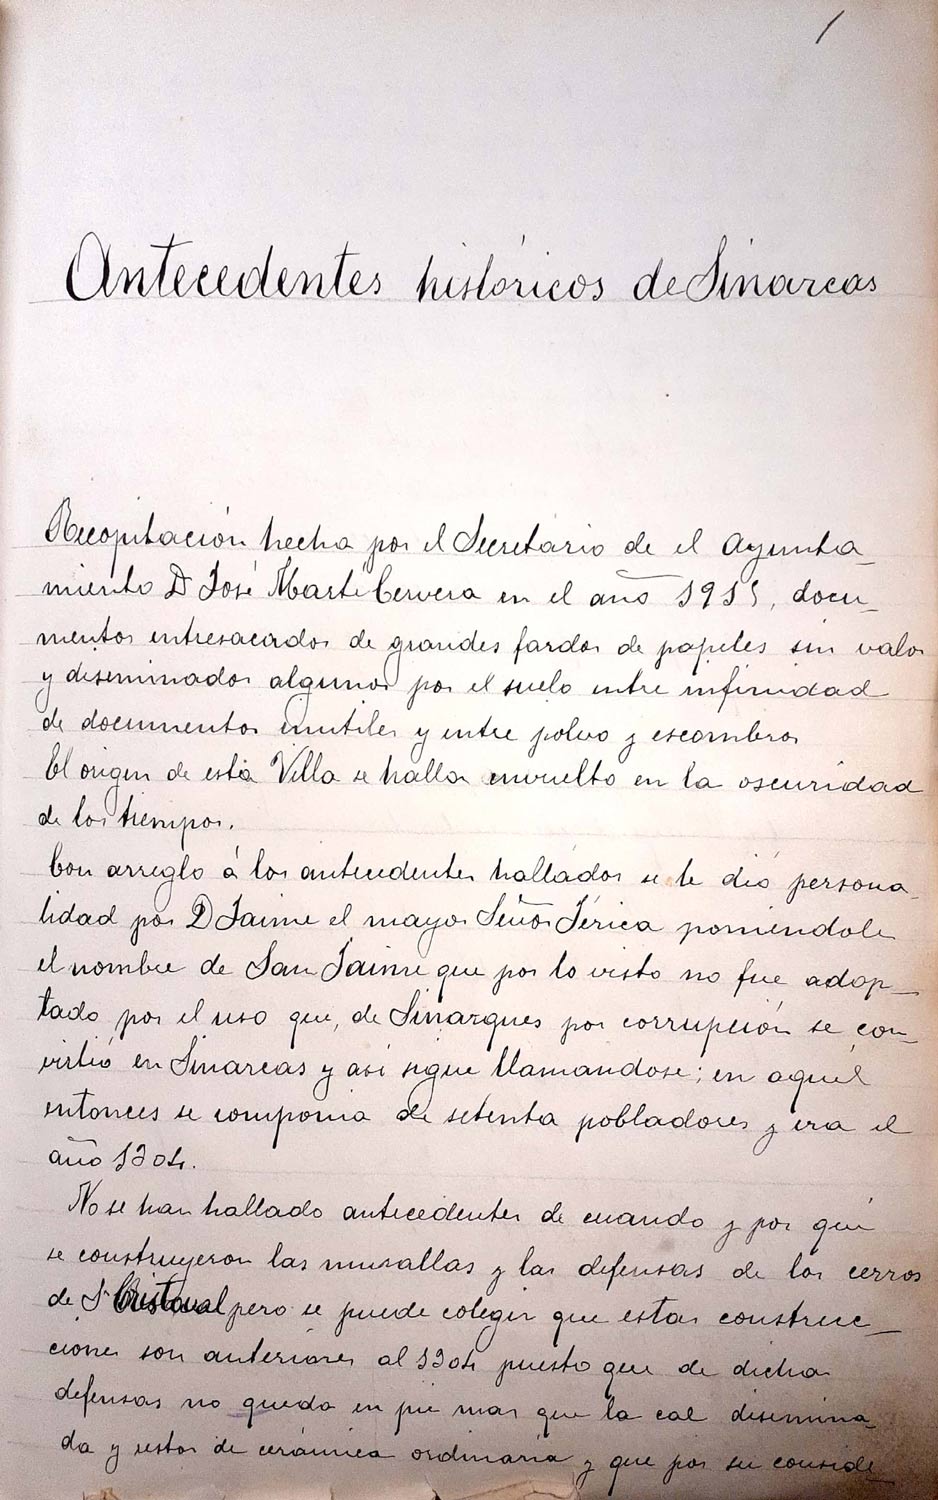 1
Antecedentes históricos de Sinarcas
Recopilación hecha por el Secretario de el Ayunta_
miento D José Martí Cervera en el año 1915, docu_
mentos entresacados de grandes fardos de papeles sin valor
y diseminados algunos por el suelo entre infinidad
de documentos inutiles y entre polvo y escombros
El origen de esta Villa se halla envuelto en la oscuridad
de los tiempos.
Con arreglo á los antecedentes hallados se le dió persona_
lidad por D Jaime el mayor Señor Jérica poniéndole
el nombre de San Jaime que por lo visto no fue adop_
tado por el uso que, de Sinarques por corrupción se con_
virtió en Sinarcas y así sigue llamandose; en aquél
entonces se componia de setenta pobladores y era el
año 1304.
No se han hallado antecedentes de cuando y por qué
se construyeron las murallas y las defensas de los cerros
de Sn Cristoval pero se puede colegir que estas construc_
ciones son anteriores al 1304 puesto que de dichas
defensas no queda en pié mas que la cal disemina_
da y restos de cerámica ordinaria y que por su conside_